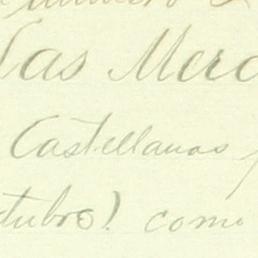 las Merc
Castellanos
ctubre). como